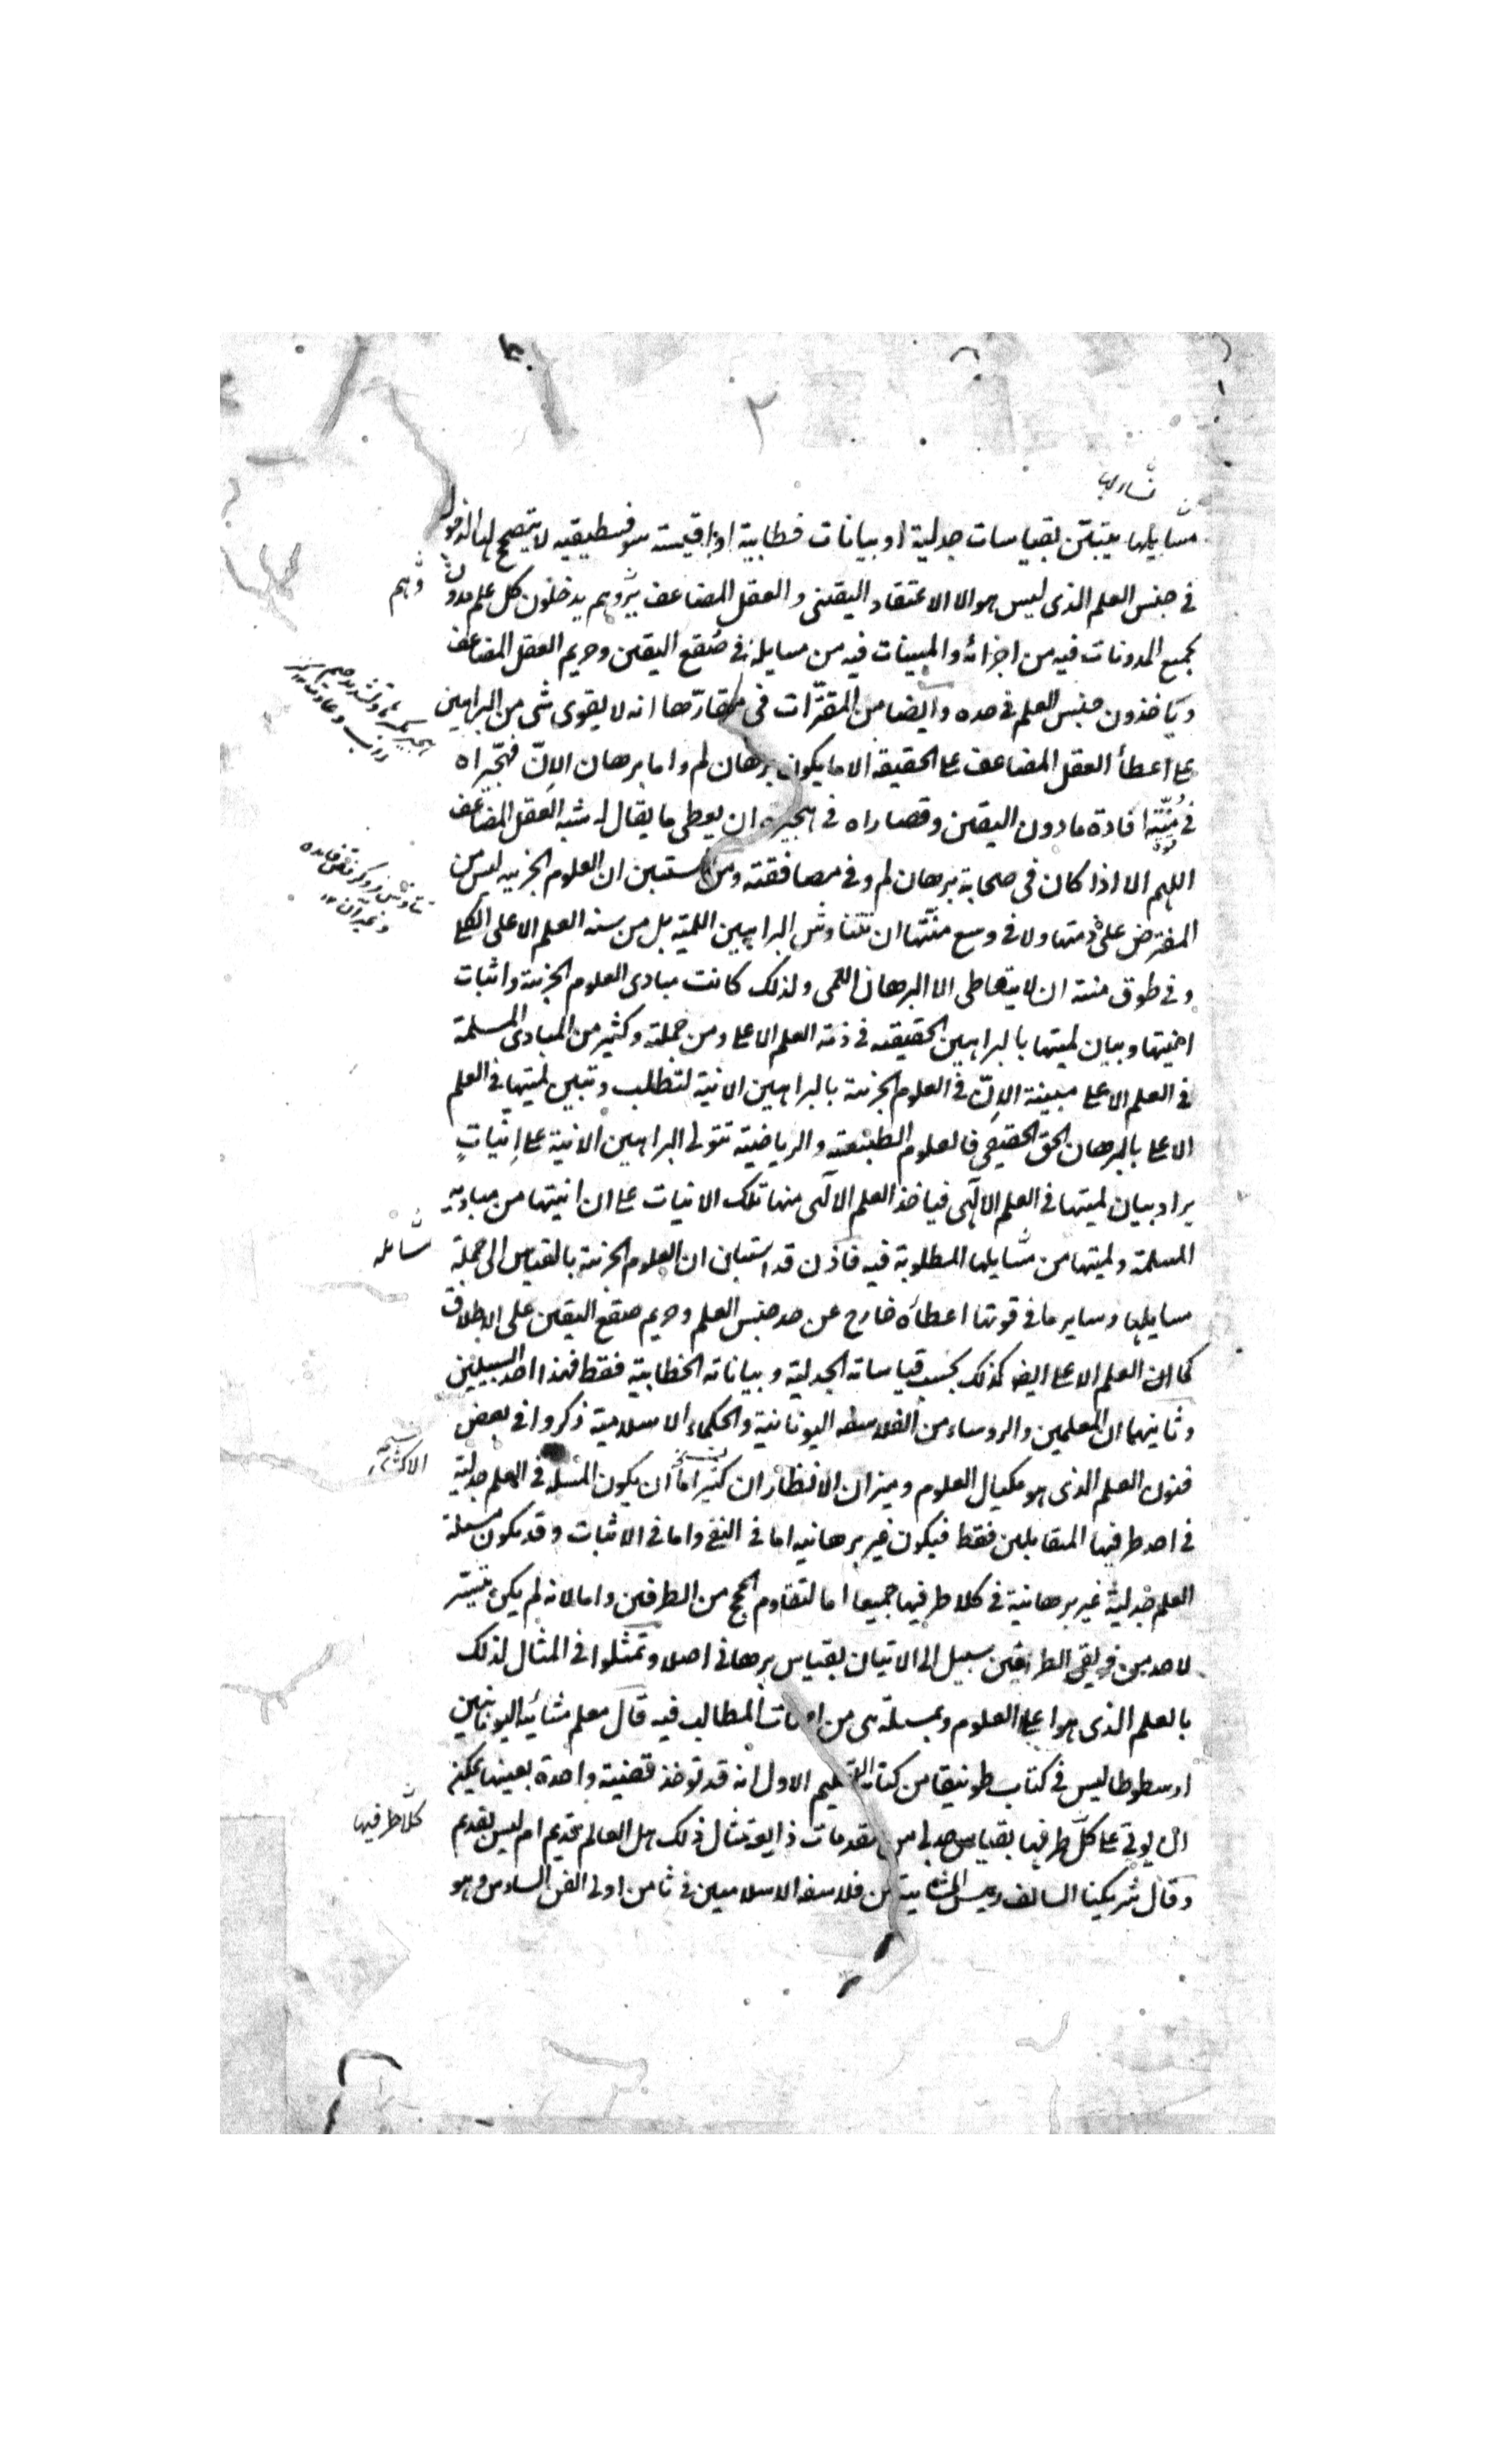 ٢
مسايلها يتبيّن بقياسات جدلية او بيانات خطابية او اقيسة سوفسطيقيه لا يتصحح لها الدخول
في جنس العلم الذى ليس هو الا الاعتقاد اليقينى و العقل المضاعف ثم وهم يدخلون كل علم مدون
بجميع المدونات فيه من اجزائه والمبينات فيه من مسايله في صُقع اليقين وحريم العقل المضاعف
وياخذون جنس العلم في حده وايضا من المقرّرات في مقارّها انه لا يقوى شى من البراهين
على اعطأ العقل المضاعف على الحقيقه الا ما يكون برهان لم واما برهان الاِنّ فهجّيراه
في مُنّته افادة ما دون اليقين وقصاراه في هجيره ان يعطى ما يقال له شبه العقل المضاعف
اللهم الا اذا كان فى صحابة برهان لم وفى مصافقته ومن المستبين ان العلوم الجزييه ليس من
المفترض على ذمتها ولا في وسع منّتها ان تتناوش البراهين اللمية بل من سنه العلم الاعلى الكلى
وفى طوق منته ان لا يتعاطى الا البرهان اللمى ولذلك كانت مبادى العلوم الجزئية واثبات
انيتها وبيان لميتها بالبراهين الحقيقه في ذمة العلم الاعلى ومن جملته وكثير من المبادى المسلمة
في العلم الاعلى مبينة الاِنّ في العلوم الجزئية بالبراهين الانية لتطلب وتبين لميتها في العلم
الاعلى بالبرهان الحق الحقيقى فالعلوم الطبيعية والرياضية تتولى البراهين الانية على اِنياتٍ
يراد بيان لميتها في العلم الالهى فياخذ العلم الالهى منها تلك الانيات على ان انيتها من مباديه
المسلمة ولميتها من مسايلها المطلوبة فيه فاذن قد استبان ان العلوم الجزئية بالقياس الى جملة
مسائله
مسايلها وساير ما في قوتها اعطاه خارج عن حد جنس العلم وحريم صقع اليقين على الاطلاق
كما ان العلم الاعلى ايضا كذلك بحسب قياساته الجدلية وبياناته الخطابية فقط فهذا احد السبيلين
وثانيهما ان المعلمين والروساء من الفلاسفه اليونانية والحكماء الاسلامية ذكروا في بعض
فنون العلم الذى هو مكيال العلوم وميزان الانظار ان كثيرا ما ان يكون المسلة في العلم جدلية
في احد طرفيها المتقابلين فقط فيكون غير برهانيه اما في النفى واما في الاثبات وقد يكون مسئلة
العلم جدلية غير برهانية في كلا طرفيها جميعا اما لتقاوم الحجج من الطرفين واما لانه لم يكن يتيسّر
لاحد من فريقى الطرفين سبيل الى الاتيان بقياس برهانى اصلا وتمثّلوا في المثال لذلك
بالعلم الذى هو اعلى العلوم وبمسئلة هى من امهات المطالب فيه قال معلم مشائية اليونانيين
ارسطوطاليس في كتاب طونيقا من كتاب التعليم الاول انه قد توخذ قضية واحدة بعينها يمكن
ان يوتى على كلّ طرفيها بقياس جدلى من مقدمات ذايعة مثال ذلك هل العالم قديم ام ليس بقديم
كلا طرفيها
وقال شريكنا السالف رييس المشائية من فلاسفه الاسلاميين في ثامن اولى الفن السادس وهو